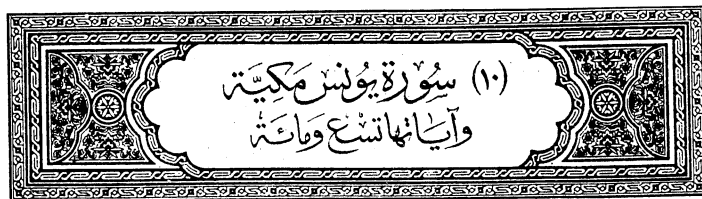 (١٠) سُورَة يُونس مَكيَّة
وآيَاتها تسْع وَمائة